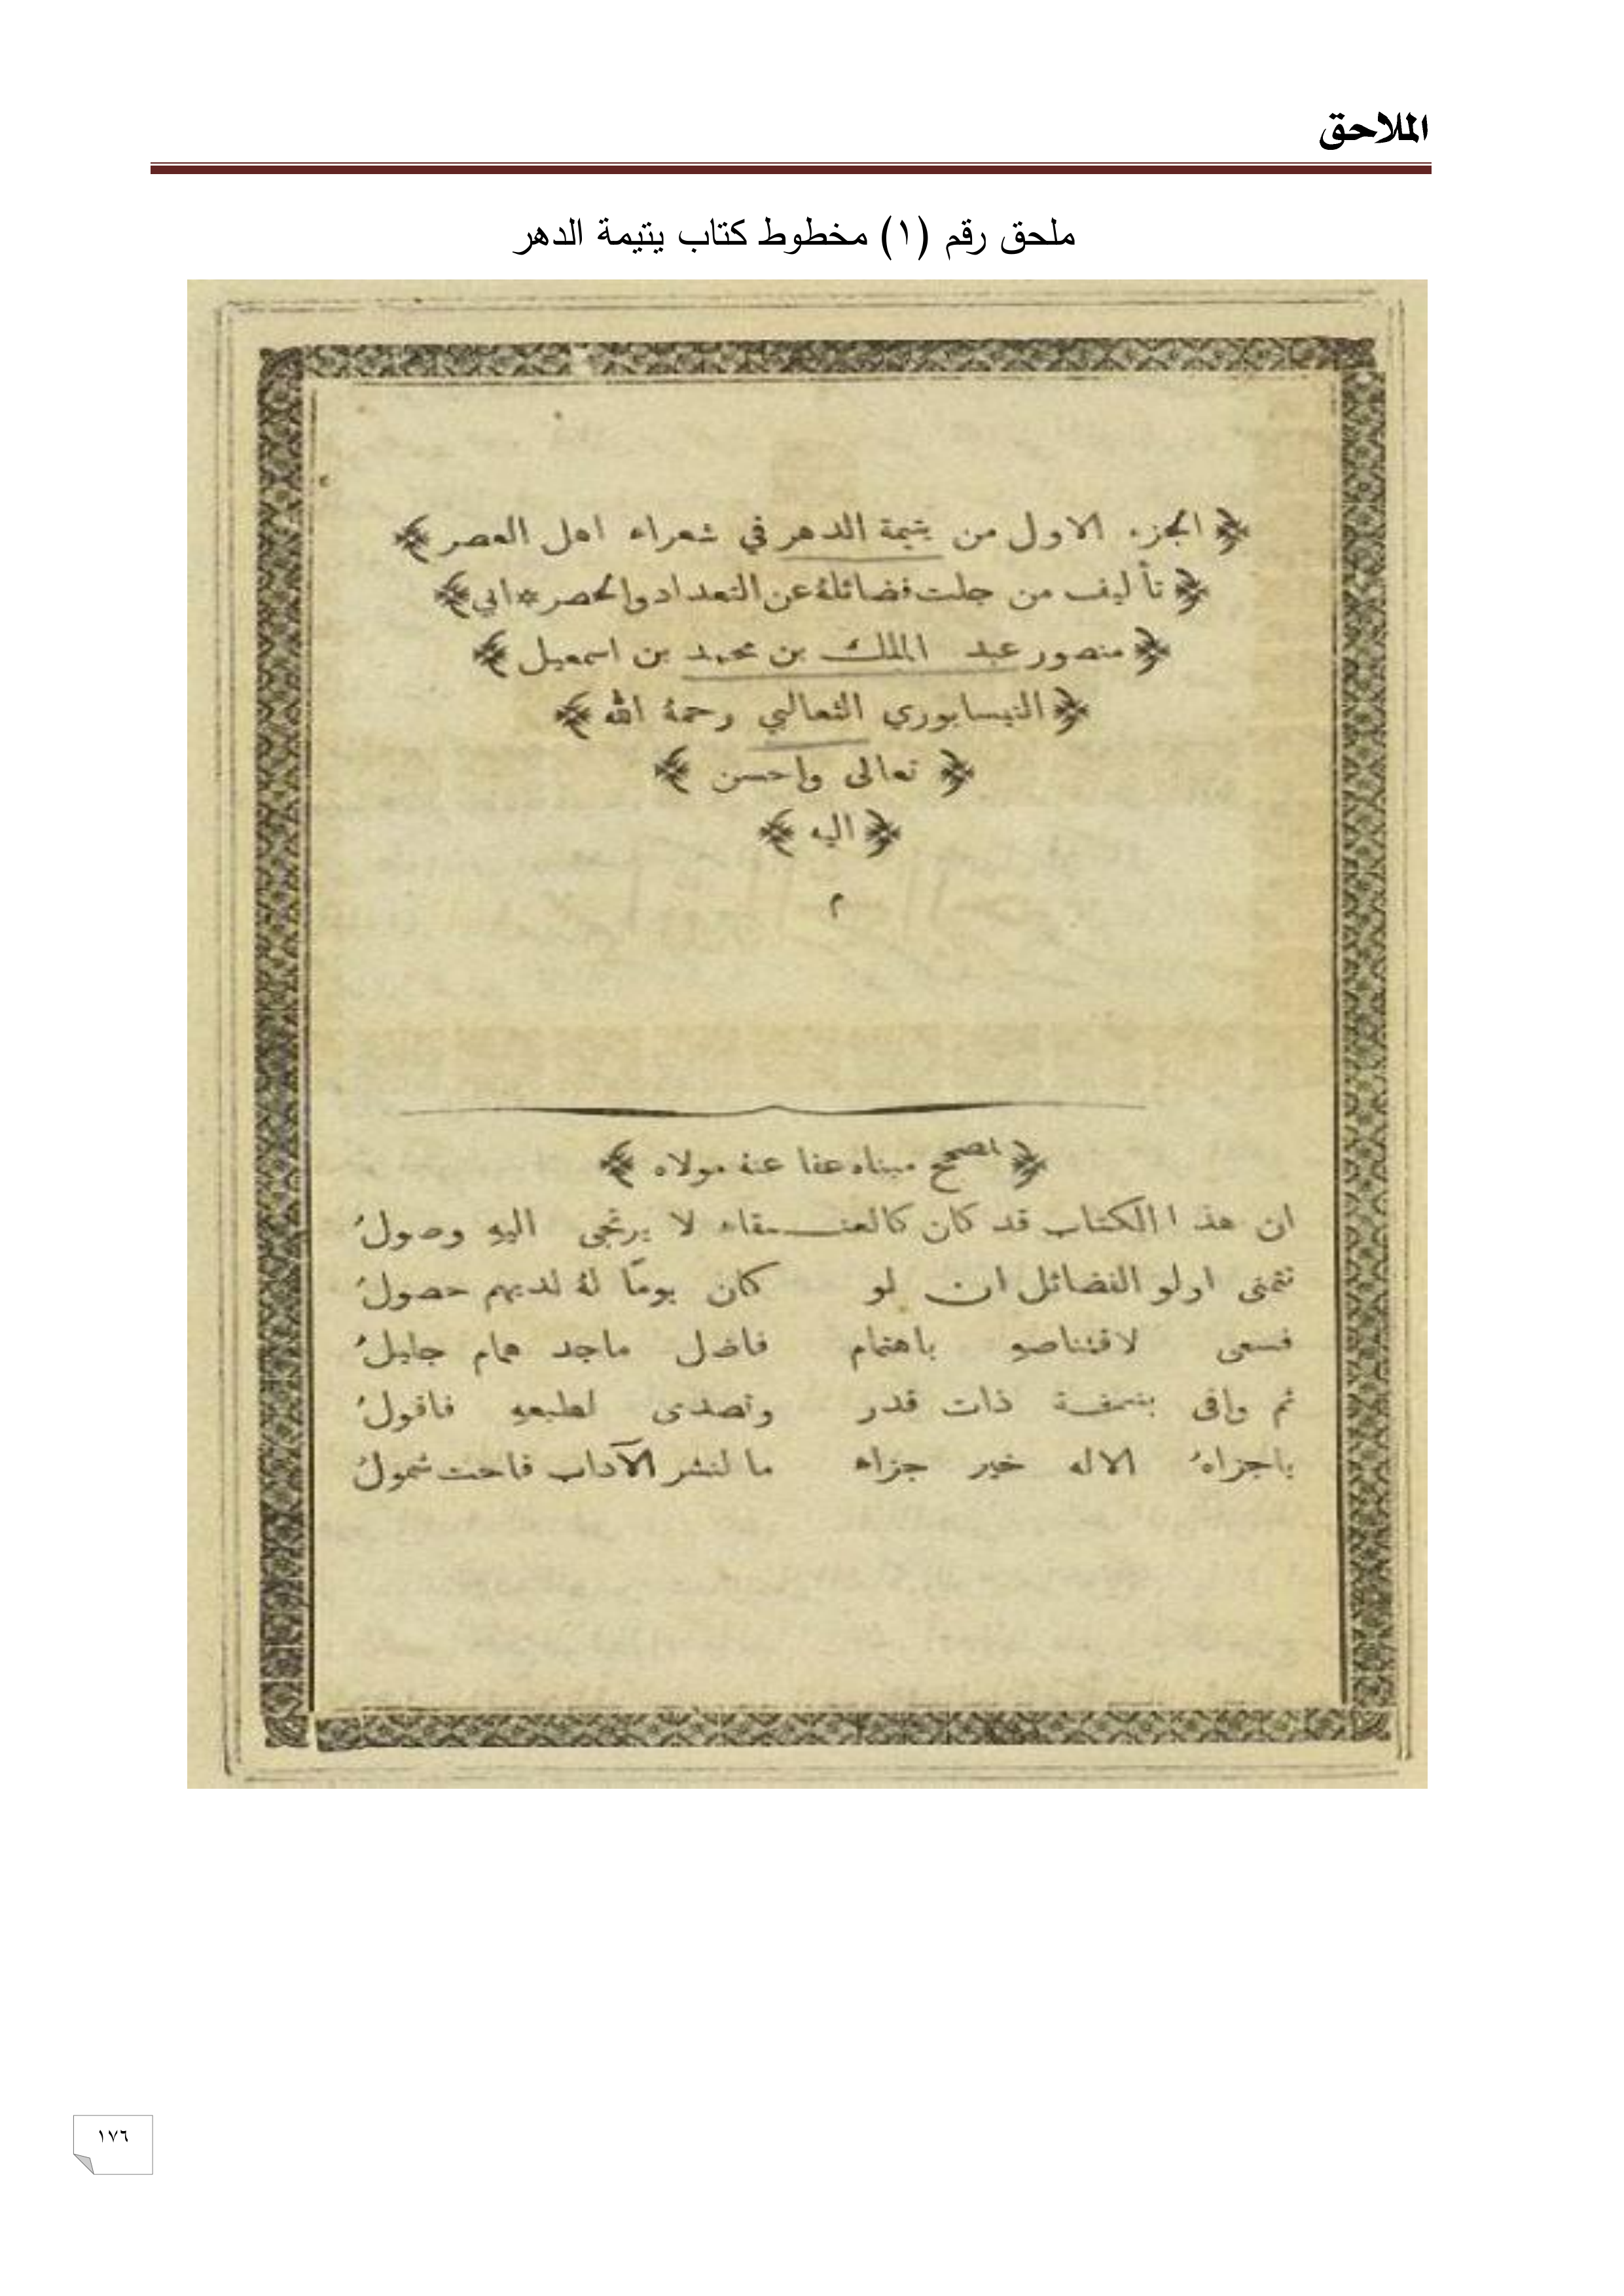 الملاحق
ملحق رقم (١) مخطوط كتاب يتيمة الدهر
﴿ الجزء الاول من يتيمة الدهر في شعراء اهل العصر ﴾
﴿ تأليف من جلت فضائلهُ عن التعداد والحصر * ابي ﴾
﴿ منصور عبد الملك بن محمد بن اسمعيل ﴾
﴿ النيسابوري الثعالبي رحمهُ الله ﴾
﴿ تعالى واحسن ﴾
﴿ اليه ﴾
م
﴿ لمصحح مبناه عفا عنهُ مولاه ﴾
ان هذا الكتاب قد كان كالعنـــقاء لا يرتجى اليهِ وصولُ
تتمنى اولو الفضائل ان لو كان يومًا لهُ لديهم حصولُ
فسعى لاقتناصهِ باهتمام فاضل ماجد همام جليلُ
ثم وافى بنسخة ذات قدر وتصدى لطبعهِ فاقولُ
ياجزاهُ الاله خير جزاء ما لنشر الآداب فاحت شمولُ
١٧٦